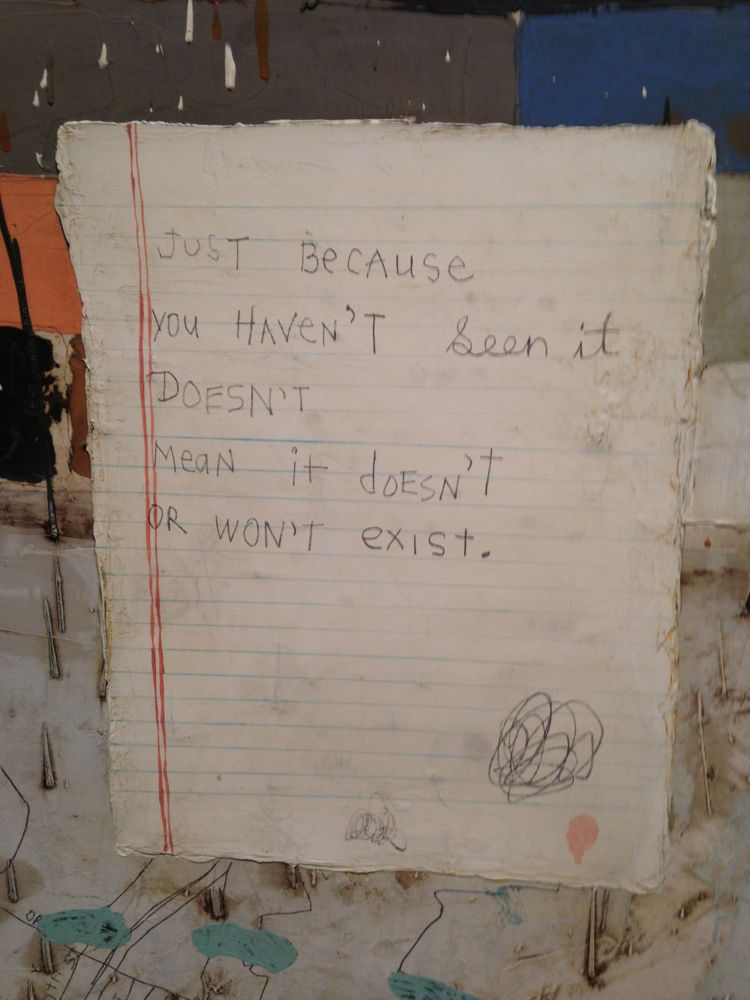 JUST BeCAUSe
YOU HAVeN'T seen it
DOESN'T
MeaN it dOESN'T
OR WON'T exist.